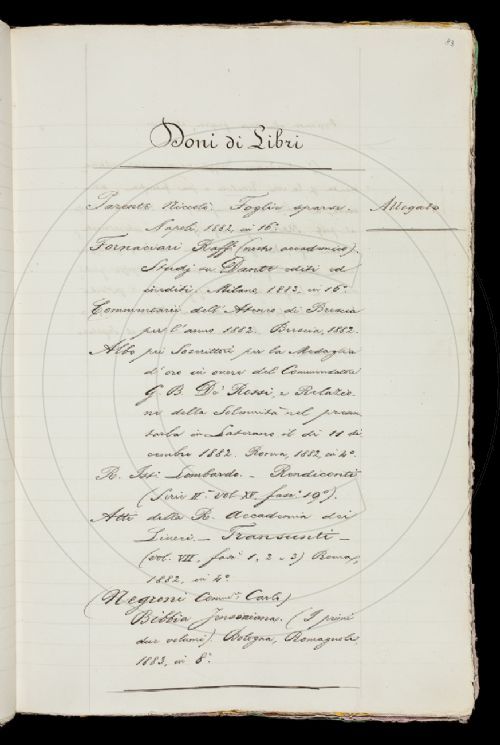 83
Doni di Libri
Allegato
Parente Niccolò. Foglie sparse.
Napoli, 1882, in 16°.
Fornaciari Raff. (nostro accademico).
Studj su Dante editi ed
inediti. Milano, 1883, in 16°.
Commentarii dell'Ateneo di Brescia
per l'anno 1882. Brescia, 1882.
Albo pei Soscrittori per la Medaglia
d'oro in onore del Commendatore
G. B. De' Rossi, e Relazio-
ne della Solennità nel presen-
tarla in Laterano il dì 11 di-
cembre 1882. Roma, 1882, in 4°.
R. Ist. Lombardo. - Rendiconti
(Serie II. - Vol. XV. fasc. 19°).
Atti della R. Accademia dei
Lincei. - Transunti -
(vol. VII, fasc. 1, 2 e 3) Roma,
1882, in 4°.
(Negroni Comm. Carlo)
Bibbia Jensoniana. (I primi
due volumi). Bologna, Romagnoli
1883, in 8°.